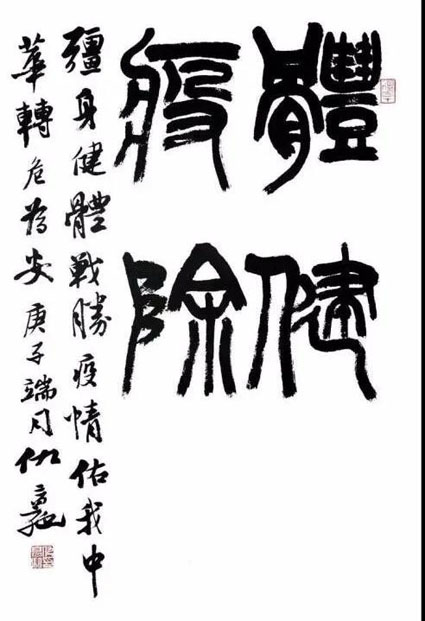 體健
疫除
彊身健體戰勝疫情佑我中
華轉危為安庚子端月仇高